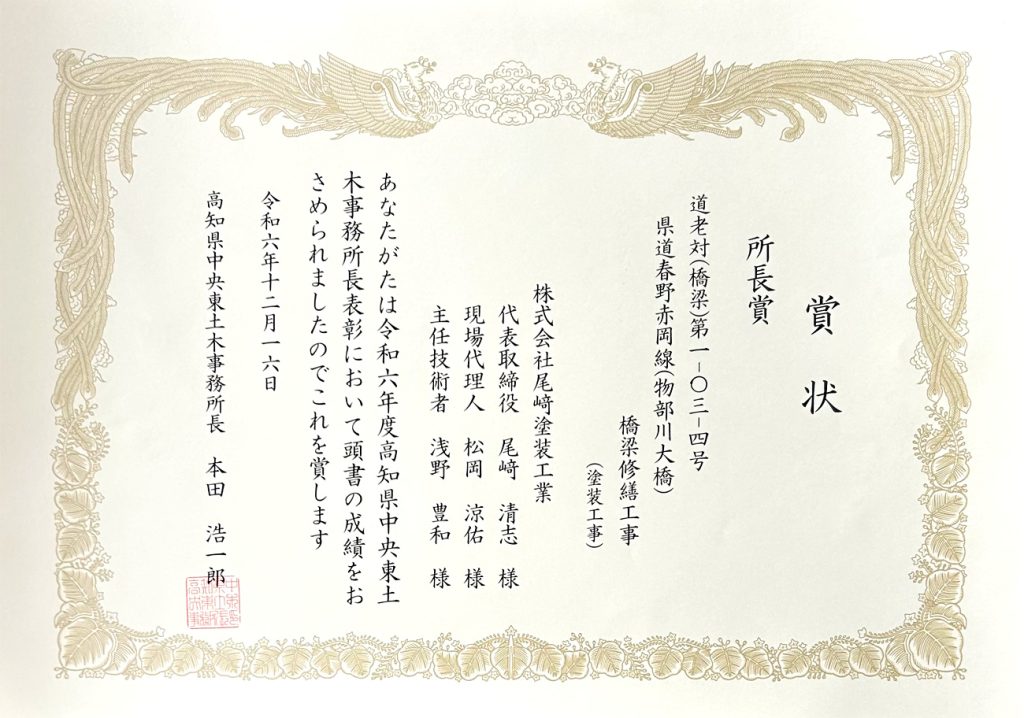 賞状
所長賞
道老対(橋梁)第一－〇三－四号
県道春野赤岡線(物部川大橋)
橋梁修繕工事
(塗装工事)
株式会社尾﨑塗装工業
代表取締役 尾﨑 清志 様
現場代理人 松岡 涼佑 様
主任技術者 浅野 豊和 様
あなたがたは令和六年度高知県中央東土
木事務所長表彰において頭書の成績をお
さめられましたのでこれを賞します
令和六年十二月一六日
高知県中央東土木事務所長 本田 浩一郎